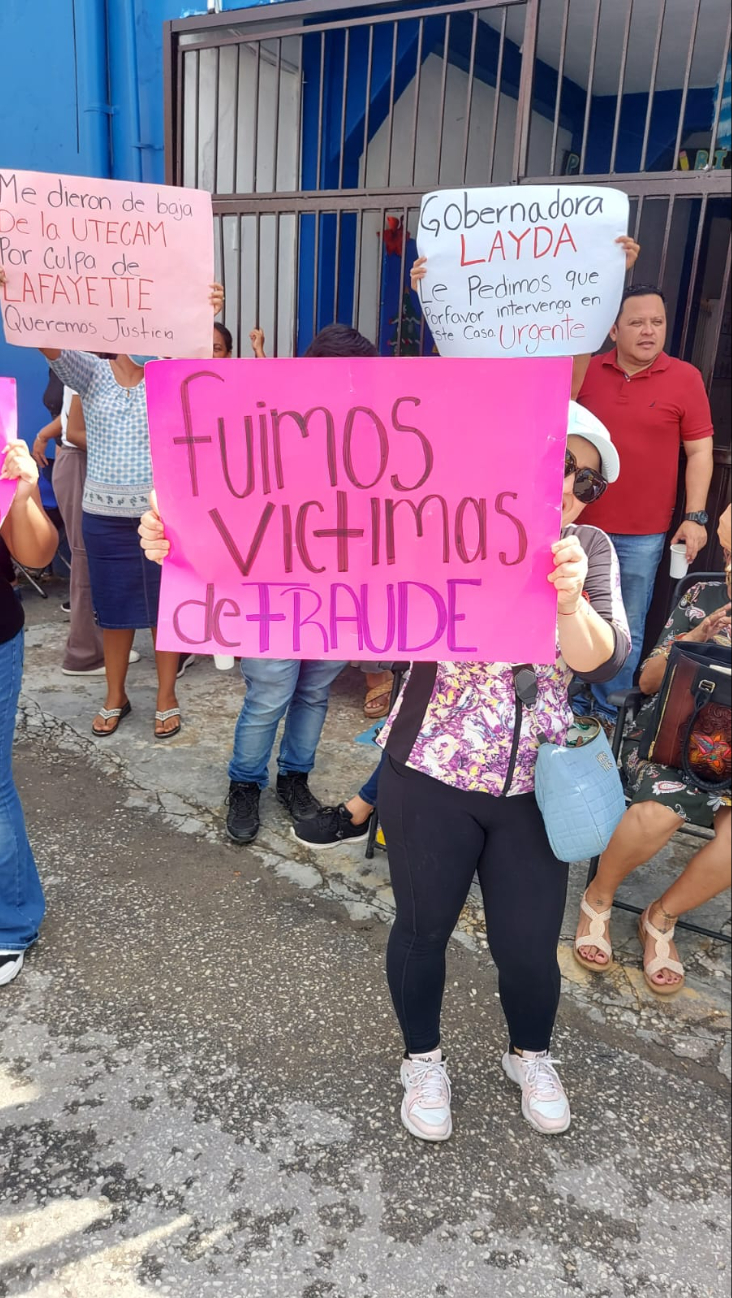 Me dieron de baja
De la UTECAM
Por culpa de
LAFAYETTE
Queremos Justicia
Gobernadora
LAYDA
Le Pedimos que
Porfavor intervenga en
este Caso Urgente
fuimos
victimas
de FRAUDE